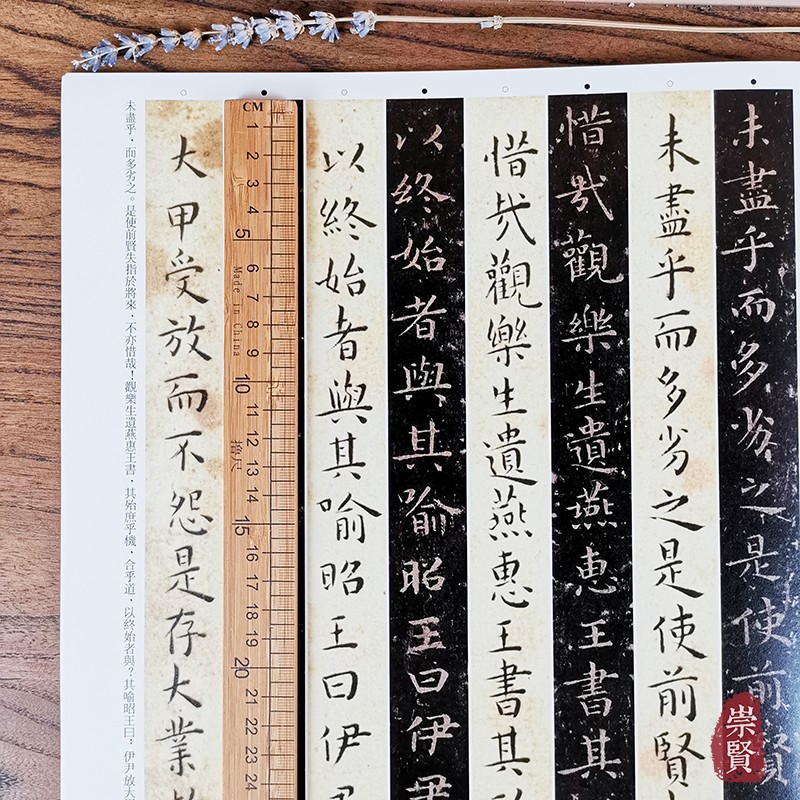 未盡乎而多劣之是使前賢
未盡乎而多劣之是使前賢
惜哉觀樂生遺燕惠王書其
惜哉觀樂生遺燕惠王書其
以終始者與其喻昭王曰伊尹
以終始者與其喻昭王曰伊
CM
1 2 3 4 5 6 7 8 9 10 11 12 13 14 15 16 17 18 19 20 21 22 23 24
Made in China
撸尺
大甲受放而不怨是存大業
未盡乎，而多劣之。是使前賢失指於將來，不亦惜哉！觀樂生遺燕惠王書，其殆庶乎機，合乎道，以終始者與？其喻昭王曰：伊尹放大
崇賢